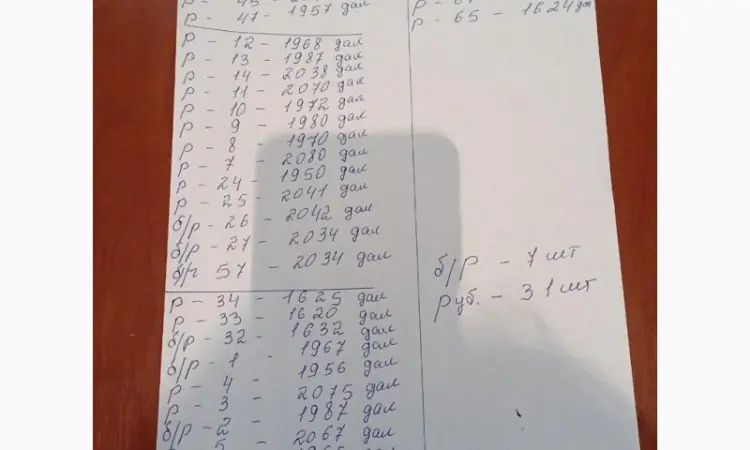 р - 41 - 1957 дал
р - 12 - 1968 дал
р - 13 - 1987 дал
р - 14 - 2038 дал
р - 11 - 2070 дал
р - 10 - 1972 дал
р - 9 - 1980 дал
р - 8 - 1970 дал
р - 7 - 2080 дал
р - 24 - 1950 дал
р - 25 - 2041 дал
б/р - 26 - 2042 дал
б/р - 27 - 2034 дал
б/р 57 - 2034 дал
р - 34 - 1625 дал
р - 33 - 1620 дал
б/р - 32 - 1632 дал
б/р - 1 - 1967 дал
р - 4 - 1956 дал
р - 3 - 2075 дал
б/р - 2 - 1987 дал
5 - 2067 дал
р - 65 - 1624 дал
б/р - 7 шт
Руб. - 31 шт